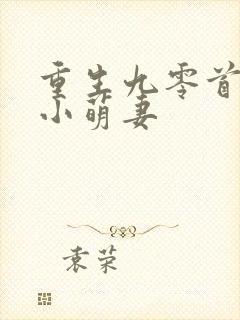 重生九零首
小萌妻
袁荣